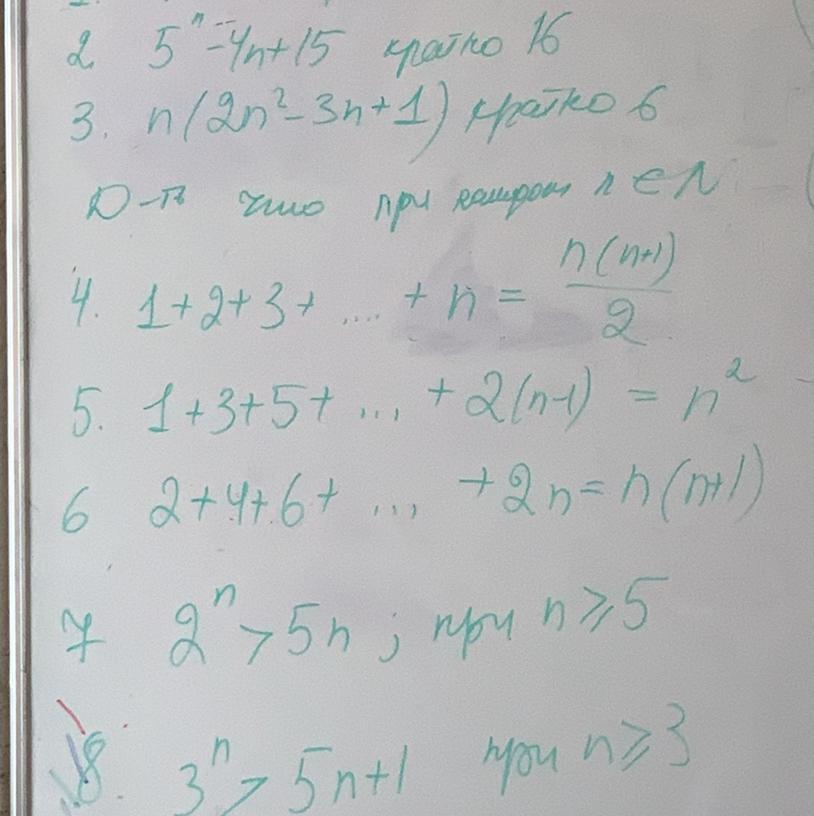 2. 5ⁿ-4n+15 кратно 16
3. n(2n²-3n+1) кратно 6
D-ть что при каждом n ∈ N
4. 1+2+3+ .... + n = n(n+1)/2
5. 1+3+5+ ... + 2(n-1) = n²
6 2+4+6+ ... +2n = n(n+1)
7 2ⁿ > 5n ; при n ⩾ 5
8. 3ⁿ > 5n+1 при n ⩾ 3